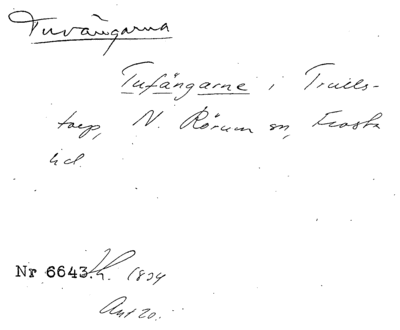 Tuvängarna
Tufängarne i Truls-
torp, N. Rörum sn, Frosta
hd.
Nr 6643. h. 1824
Ant 20.